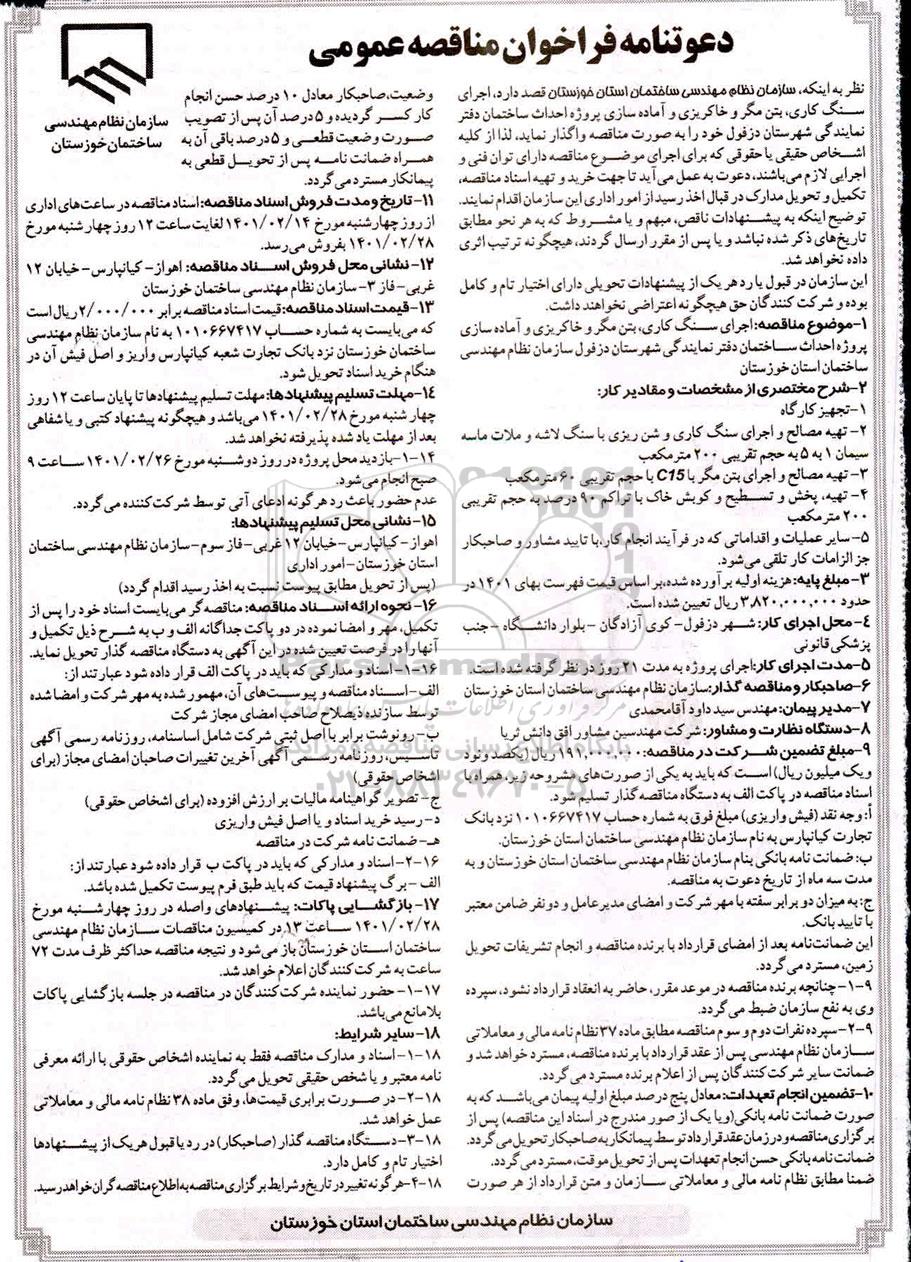 دعوتنامه فراخوان مناقصه عمومی
سازمان نظام مهندسی
ساختمان خوزستان
نظر به اینکه، سازمان نظام مهندسی ساختمان استان خوزستان قصد دارد، اجرای
سنگ کاری، بتن مگر و خاکریزی و آماده سازی پروژه احداث ساختمان دفتر
نمایندگی شهرستان دزفول خود را به صورت مناقصه واگذار نماید، لذا از کلیه
اشخاص حقیقی یا حقوقی که برای اجرای موضوع مناقصه دارای توان فنی و
اجرایی لازم می‌باشند، دعوت به عمل می‌آید تا جهت خرید و تهیه اسناد مناقصه،
تکمیل و تحویل مدارک در قبال اخذ رسید از امور اداری این سازمان اقدام نمایند.
توضیح اینکه به پیشنهادات ناقص، مبهم و یا مشروط که به هر نحو مطابق
تاریخ‌های ذکر شده نباشد و یا پس از مقرر ارسال گردند، هیچگونه ترتیب اثری
داده نخواهد شد.
این سازمان در قبول یا رد هر یک از پیشنهادات تحویلی دارای اختیار تام و کامل
بوده و شرکت کنندگان حق هیچگونه اعتراضی نخواهند داشت.
۱-موضوع مناقصه: اجرای سنگ کاری، بتن مگر و خاکریزی و آماده سازی
پروژه احداث ساختمان دفتر نمایندگی شهرستان دزفول سازمان نظام مهندسی
ساختمان استان خوزستان
۲-شرح مختصری از مشخصات و مقادیر کار:
۱-تجهیز کارگاه
۲- تهیه مصالح و اجرای سنگ کاری و شن ریزی با سنگ لاشه و ملات ماسه
سیمان ۱ به ۵ به حجم تقریبی ۲۰۰ مترمکعب
۳- تهیه مصالح و اجرای بتن مگر با C15 با حجم تقریبی ۶۰ مترمکعب
۴- تهیه، پخش و تسطیح و کوبش خاک با تراکم ۹۰ درصد به حجم تقریبی
۲۰۰ مترمکعب
۵- سایر عملیات و اقداماتی که در فرآیند انجام کار، با تایید مشاور و صاحبکار
جز الزامات کار تلقی می‌شود.
۳-مبلغ پایه: هزینه اولیه برآورده شده، بر اساس قیمت فهرست بهای ۱۴۰۱ در
حدود ۳,۸۲۰,۰۰۰,۰۰۰ ریال تعیین شده است.
۴- محل اجرای کار: شهر دزفول- کوی آزادگان - بلوار دانشگاه - جنب
پزشکی قانونی
۵-مدت اجرای کار: اجرای پروژه به مدت ۲۱ روز در نظر گرفته شده است.
۶-صاحبکار و مناقصه گذار: سازمان نظام مهندسی ساختمان استان خوزستان
۷-مدیر پیمان: مهندس سید داود آقامحمدی
۸-دستگاه نظارت و مشاور: شرکت مهندسین مشاور افق دانش ثریا
۹-مبلغ تضمین شرکت در مناقصه: ۱۹۱,۰۰۰,۰۰۰ ریال (یکصد و نود
و یک میلیون ریال) است که باید به یکی از صورت‌های مشروحه زیر، همراه با
اسناد مناقصه در پاکت الف به دستگاه مناقصه گذار تسلیم شود.
أ: وجه نقد (فیش واریزی) مبلغ فوق به شماره حساب ۱۰۱۰۶۶۷۴۱۷ نزد بانک
تجارت کیانپارس به نام سازمان نظام مهندسی ساختمان استان خوزستان.
ب: ضمانت نامه بانکی بنام سازمان نظام مهندسی ساختمان استان خوزستان و به
مدت سه ماه از تاریخ دعوت به مناقصه.
ج: به میزان دو برابر سفته با مهر شرکت و امضای مدیرعامل و دو نفر ضامن معتبر
با تایید بانک.
این ضمانت‌نامه بعد از امضای قرارداد با برنده مناقصه و انجام تشریفات تحویل
زمین، مسترد می‌گردد.
۹-۱-چنانچه برنده مناقصه در موعد مقرر، حاضر به انعقاد قرارداد نشود، سپرده
وی به نفع سازمان ضبط می‌گردد.
۹-۲-سپرده نفرات دوم و سوم مناقصه مطابق ماده ۳۷ نظام نامه مالی و معاملاتی
سازمان نظام مهندسی پس از عقد قرارداد با برنده مناقصه، مسترد خواهد شد و
ضمانت سایر شرکت کنندگان پس از اعلام برنده مسترد می‌گردد.
۱۰-تضمین انجام تعهدات: معادل پنج درصد مبلغ اولیه پیمان می‌باشد که به
صورت ضمانت نامه بانکی (و یا یک از صور مندرج در اسناد این مناقصه) پس از
برگزاری مناقصه و در زمان عقد قرارداد توسط پیمانکار به صاحبکار تحویل می‌گردد.
ضمانت نامه بانکی حسن انجام تعهدات پس از تحویل موقت، مسترد می‌گردد.
ضمنا مطابق نظام نامه مالی و معاملاتی سازمان و متن قرارداد از هر صورت
وضعیت، صاحبکار معادل ۱۰ درصد حسن انجام
کار کسر گردیده و ۵ درصد آن پس از تصویب
صورت وضعیت قطعی و ۵ درصد باقی آن به
همراه ضمانت نامه پس از تحویل قطعی به
پیمانکار مسترد می‌گردد.
۱۱-تاریخ و مدت فروش اسناد مناقصه: اسناد مناقصه در ساعت‌های اداری
از روز چهارشنبه مورخ ۱۴۰۱/۰۲/۱۴ لغایت ساعت ۱۲ روز چهارشنبه مورخ
۱۴۰۱/۰۲/۲۸ بفروش می‌رسد.
۱۲- نشانی محل فروش اسناد مناقصه: اهواز- کیانپارس- خیابان ۱۲
غربی- فاز ۳- سازمان نظام مهندسی ساختمان خوزستان
۱۳-قیمت اسناد مناقصه: قیمت اسناد مناقصه برابر ۲/۰۰۰/۰۰۰ ریال است
که می‌بایست به شماره حساب ۱۰۱۰۶۶۷۴۱۷ به نام سازمان نظام مهندسی
ساختمان خوزستان نزد بانک تجارت شعبه کیانپارس واریز و اصل فیش آن در
هنگام خرید اسناد تحویل شود.
۱۴-مهلت تسلیم پیشنهادها: مهلت تسلیم پیشنهادها تا پایان ساعت ۱۲ روز
چهارشنبه مورخ ۱۴۰۱/۰۲/۲۸ می‌باشد و هیچگونه پیشنهاد کتبی و یا شفاهی
بعد از مهلت یاد شده پذیرفته نخواهد شد.
۱۴-۱-بازدید محل پروژه در روز دوشنبه مورخ ۱۴۰۱/۰۲/۲۶ ساعت ۹
صبح انجام می‌شود.
عدم حضور باعث رد هرگونه ادعای آتی توسط شرکت‌کننده می‌گردد.
۱۵-نشانی محل تسلیم پیشنهادها:
اهواز-کیانپارس-خیابان ۱۲ غربی-فاز سوم-سازمان نظام مهندسی ساختمان
استان خوزستان-امور اداری
(پس از تحویل مطابق پیوست نسبت به اخذ رسید اقدام گردد)
۱۶-نحوه ارائه اسناد مناقصه: مناقصه‌گر می‌بایست اسناد خود را پس از
تکمیل، مهر و امضا نموده در دو پاکت جداگانه الف و ب به شرح ذیل تکمیل و
آنها را در فرصت تعیین شده در این آگهی به دستگاه مناقصه گذار تحویل نماید.
۱۶-۱- اسناد و مدارکی که باید در پاکت الف قرار داده شود عبارتند از:
الف-اسناد مناقصه و پیوست‌های آن، مهمور شده به مهر شرکت و امضا شده
توسط سازنده ذیصلاح صاحب امضای مجاز شرکت
ب-رونوشت برابر با اصل ثبتی شرکت شامل اساسنامه، روزنامه رسمی آگهی
تاسیس، روزنامه رسمی آگهی آخرین تغییرات صاحبان امضای مجاز (برای
اشخاص حقوقی)
ج- تصویر گواهینامه مالیات بر ارزش افزوده (برای اشخاص حقوقی)
د- رسید خرید اسناد و یا اصل فیش واریزی
هـ- ضمانت نامه شرکت در مناقصه
۱۶-۲- اسناد و مدارکی که باید در پاکت ب قرار داده شود عبارتند از:
الف - برگ پیشنهاد قیمت که باید طبق فرم پیوست تکمیل شده باشد.
۱۷-بازگشایی پاکات: پیشنهادهای واصله در روز چهارشنبه مورخ
۱۴۰۱/۰۲/۲۸ ساعت ۱۳ در کمیسیون مناقصات سازمان نظام مهندسی
ساختمان استان خوزستان باز می‌شود و نتیجه مناقصه حداکثر ظرف مدت ۷۲
ساعت به شرکت کنندگان اعلام خواهد شد.
۱۷-۱- حضور نماینده شرکت‌کنندگان در مناقصه در جلسه بازگشایی پاکات
بلامانع می‌باشد.
۱۸-سایر شرایط:
۱۸-۱-اسناد و مدارک مناقصه فقط به نماینده اشخاص حقوقی با ارائه معرفی
نامه معتبر و یا شخص حقیقی تحویل می‌گردد.
۱۸-۲- در صورت برابری قیمت‌ها، وفق ماده ۳۸ نظام نامه مالی و معاملاتی
عمل خواهد شد.
۱۸-۳-دستگاه مناقصه گذار (صاحبکار) در رد یا قبول هر یک از پیشنهادها
اختیار تام و کامل دارد.
۱۸-۴-هرگونه تغییر در تاریخ و شرایط برگزاری مناقصه به اطلاع مناقصه گران خواهد رسید.
سازمان نظام مهندسی ساختمان استان خوزستان
ParsNamadData
پایگاه اطلاع رسانی مناقصه و مزایده
۰۲۱-۸۸۳۴۹۶۷۰-۵